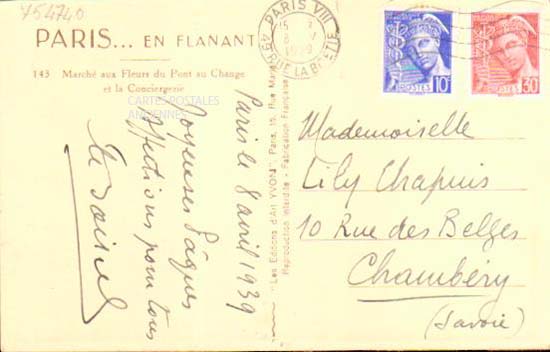 754740
PARIS... EN FLANANT
143 Marché aux Fleurs du Pont au Change
et la Conciergerie
CARTES POSTALES
ANCIENNES
Paris le 8 avril 1939
Joyeuses Pâques
Affections pour tous
Les Editions d'Art "YVON", Paris, 15, Rue Martel
Reproduction Interdite - Fabrication Française
PARIS VIII
49 RUE LA BOETIE
POSTES 10c
POSTES 30c
Mademoiselle
Lily Chapuis
10 Rue des Belges
Chambéry
(Savoie)